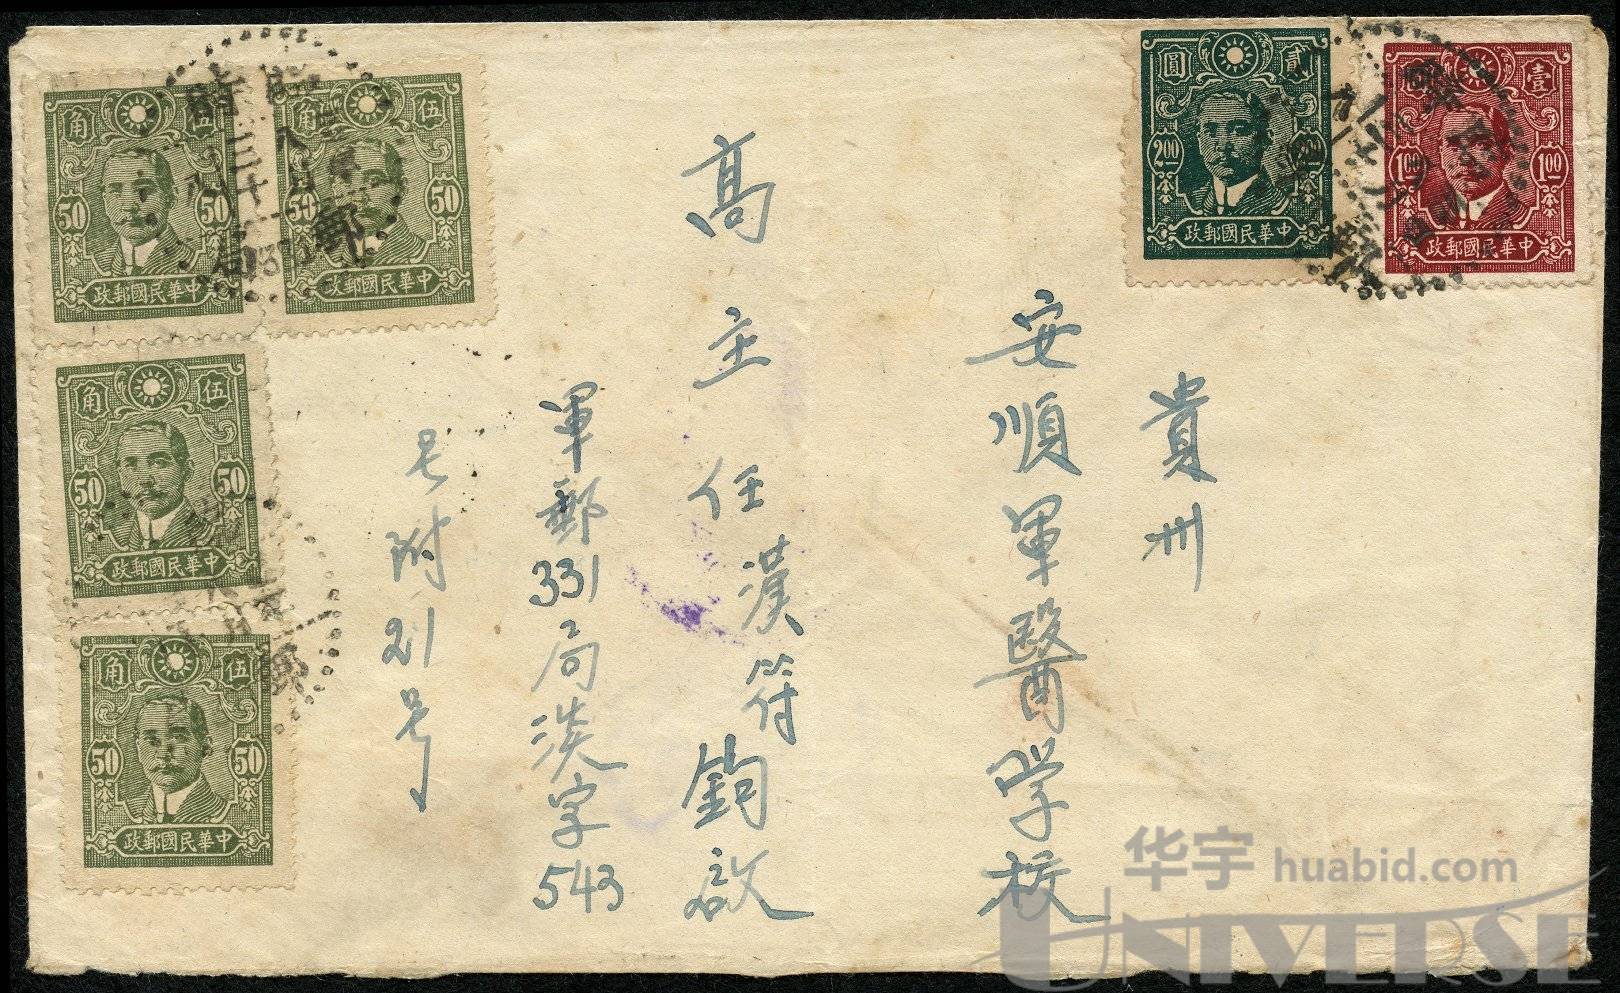 貴州
安順軍醫学校
高主任漢符 鈞啟
軍郵331局淡字543
号附21号
貳圓
2.00 2.00
中華民國郵政
壹圓
1.00 1.00
中華民國郵政
伍角
50 50
中華民國郵政
伍角
50 50
中華民國郵政
伍角
50 50
中華民國郵政
伍角
50 50
中華民國郵政
华宇 huabid.com
UNIVERSE